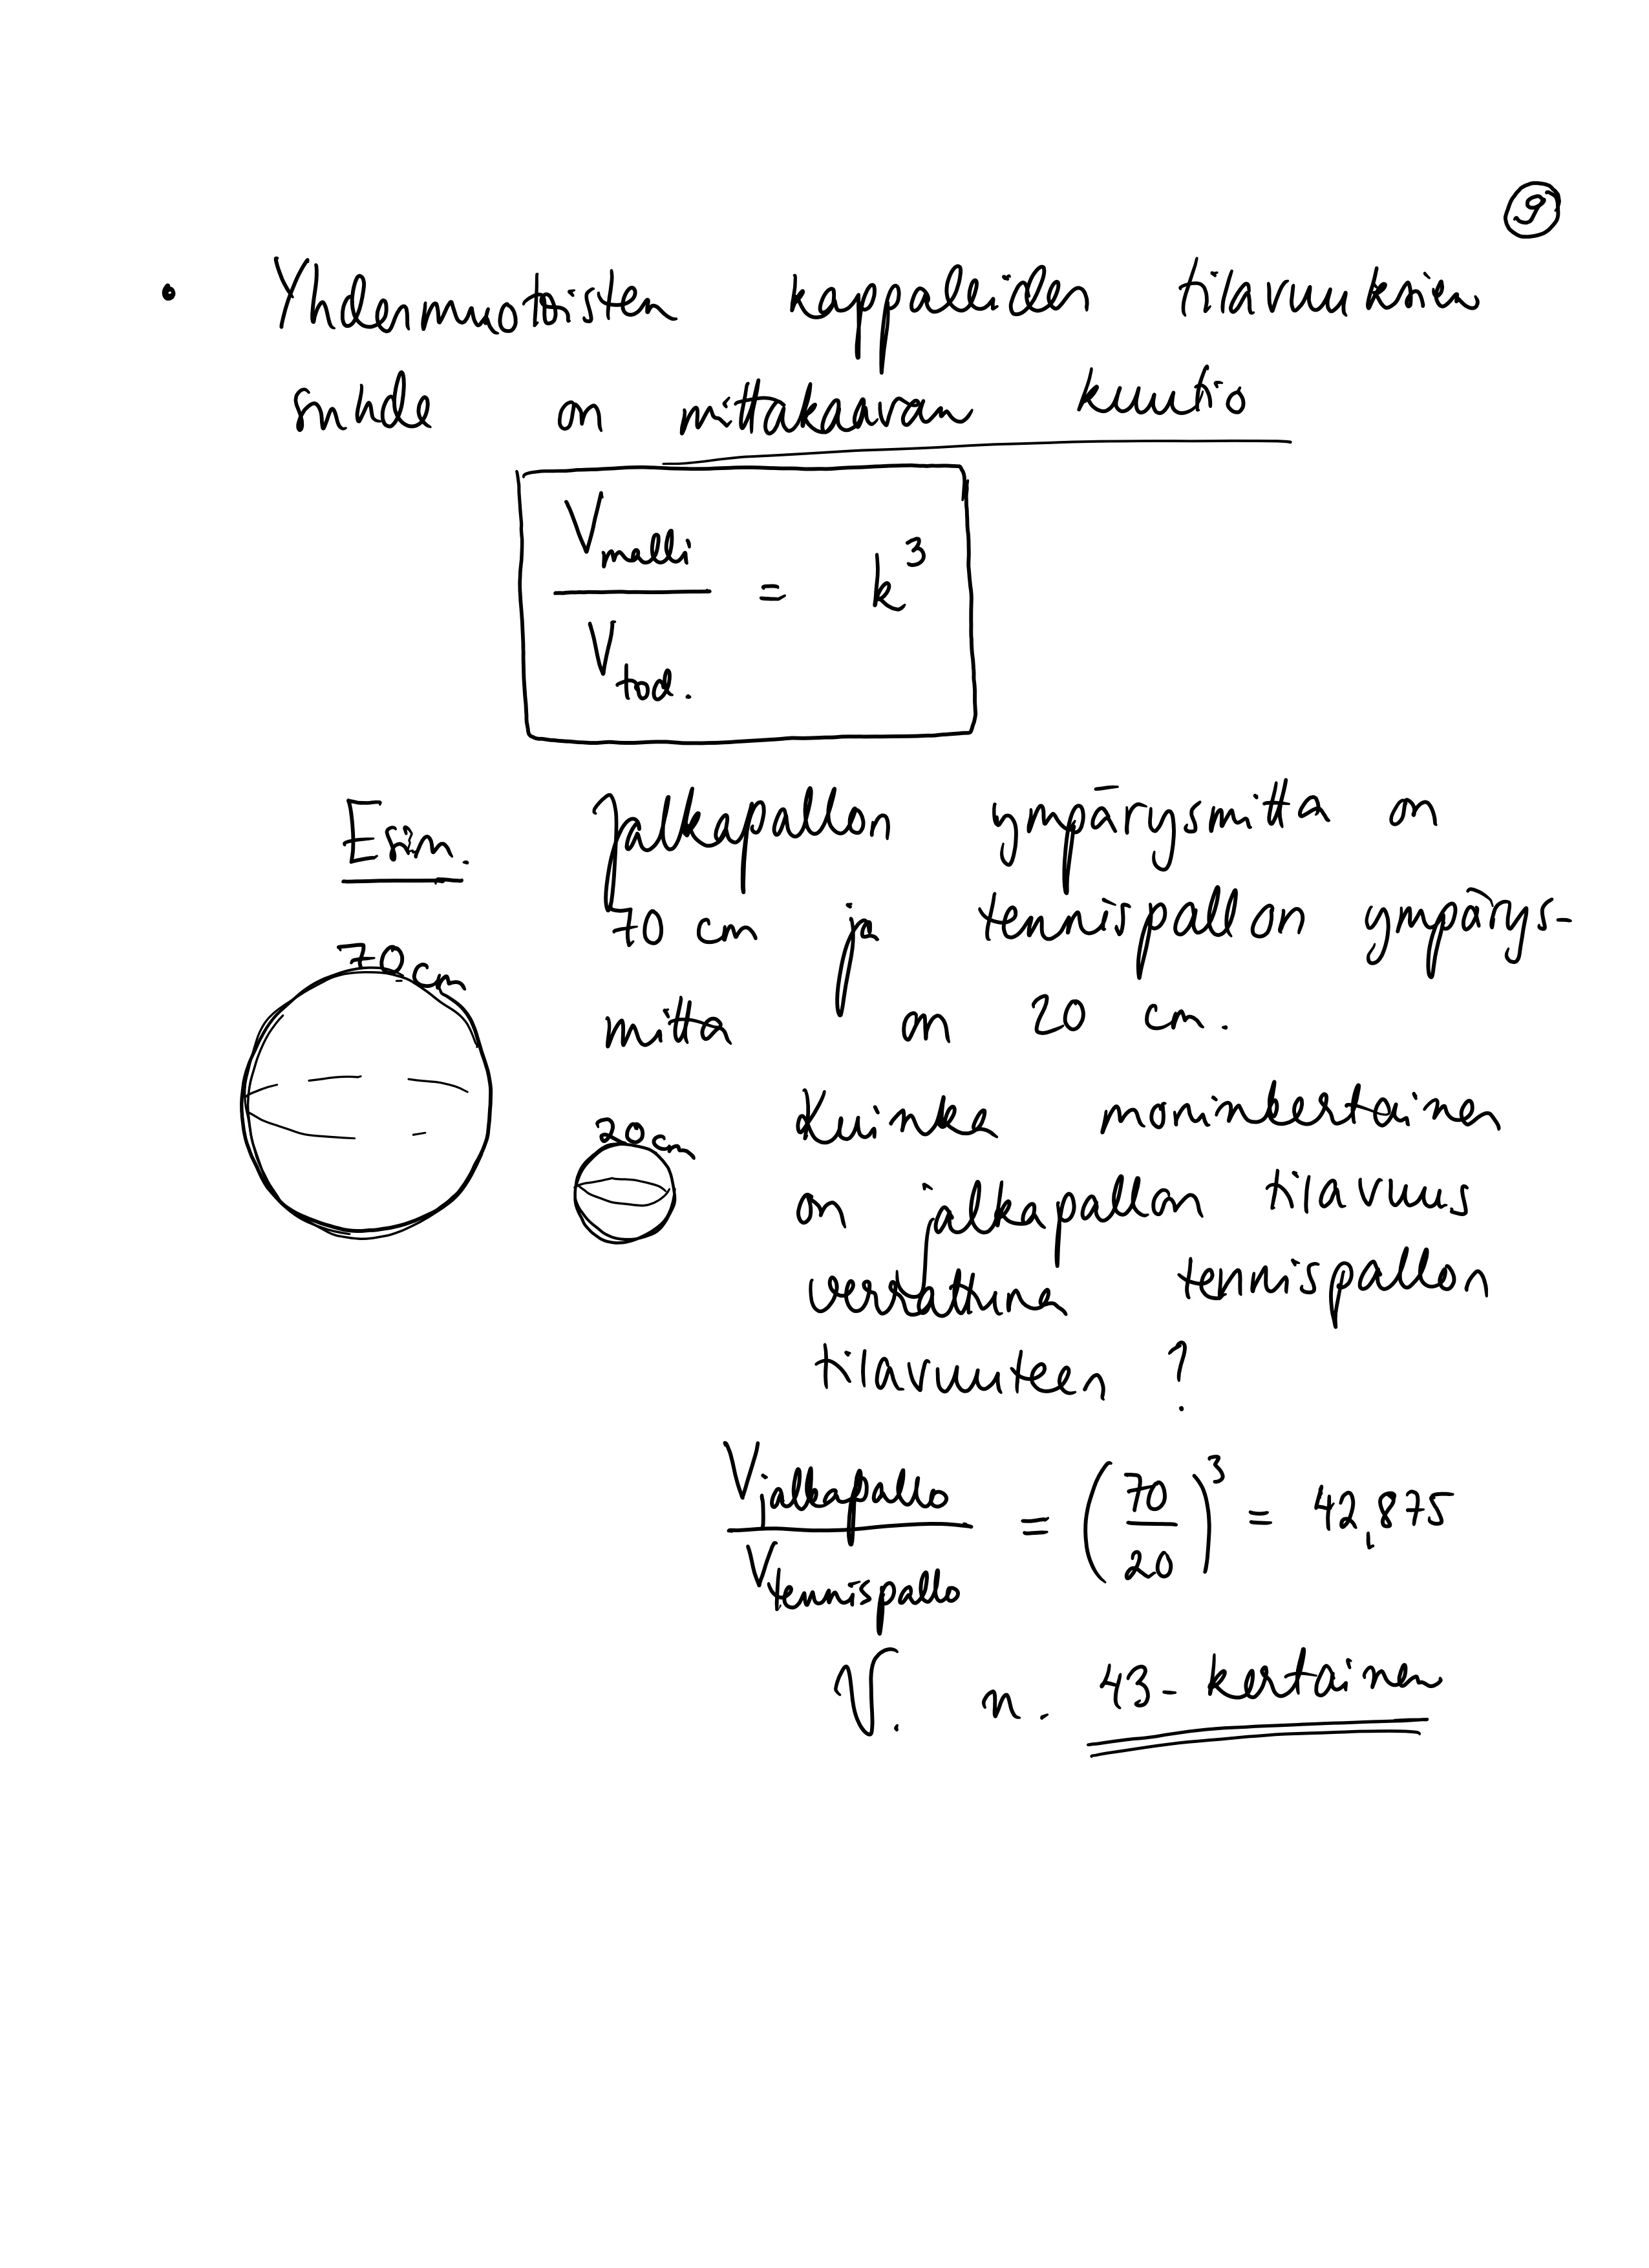 9
• Yhdenmuotoisten kappaleiden tilavuuksien
suhde on mittakaavan kuutio
V_malli / V_tod. = k³
Esim. Jalkapallon ympärysmitta on
70 cm ja tennispallon ympärys-
mitta on 20 cm.
70 cm
20 cm
Kuinka moninkertainen
on jalkapallon tilavuus
verrattuna tennispallon
tilavuuteen ?
V_jalkapallo / V_tennispallo = (70/20)³ = 42,875
V. n. 43-kertainen